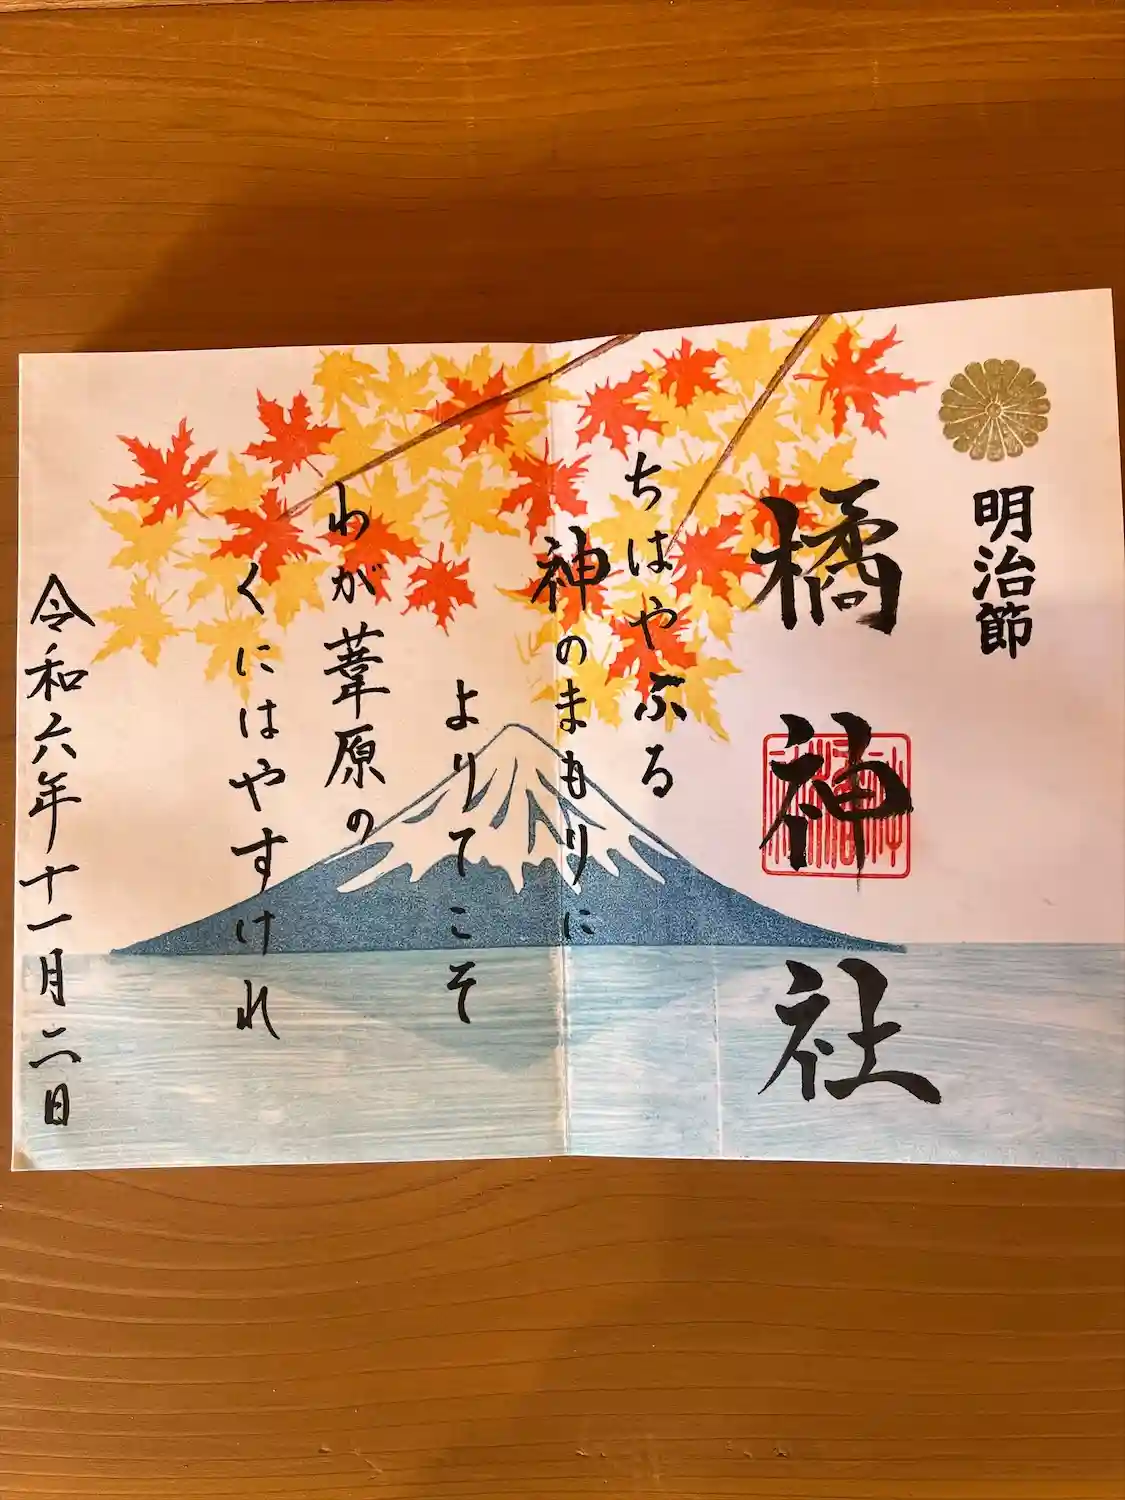 明治節
橘神社
ちはやふる
神のまもりに
よりてこそ
わが葦原の
くにはやすけれ
令和六年十一月二日